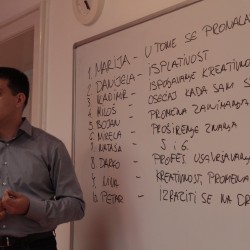 1. MARIJA - U TOME SE PRONALA
2. DANIJELA - ISPLATIVOST
3. RADIMIR - ISPOLJAVANJE KREATIVNO
4. MILOŠ - OSEĆAJ KADA SAM S
5. BOJAN - PROMENA ZANIMANJA
6. MILELA - PROŠIRENJE ZNANJA
7. NATAŠA - 5 i 6.
8. DARKO - PROFES. USAVRŠAVANJA
9. - KREATIVNOST, PROMENA
10. PETAR - IZRAZITI SE NA DR